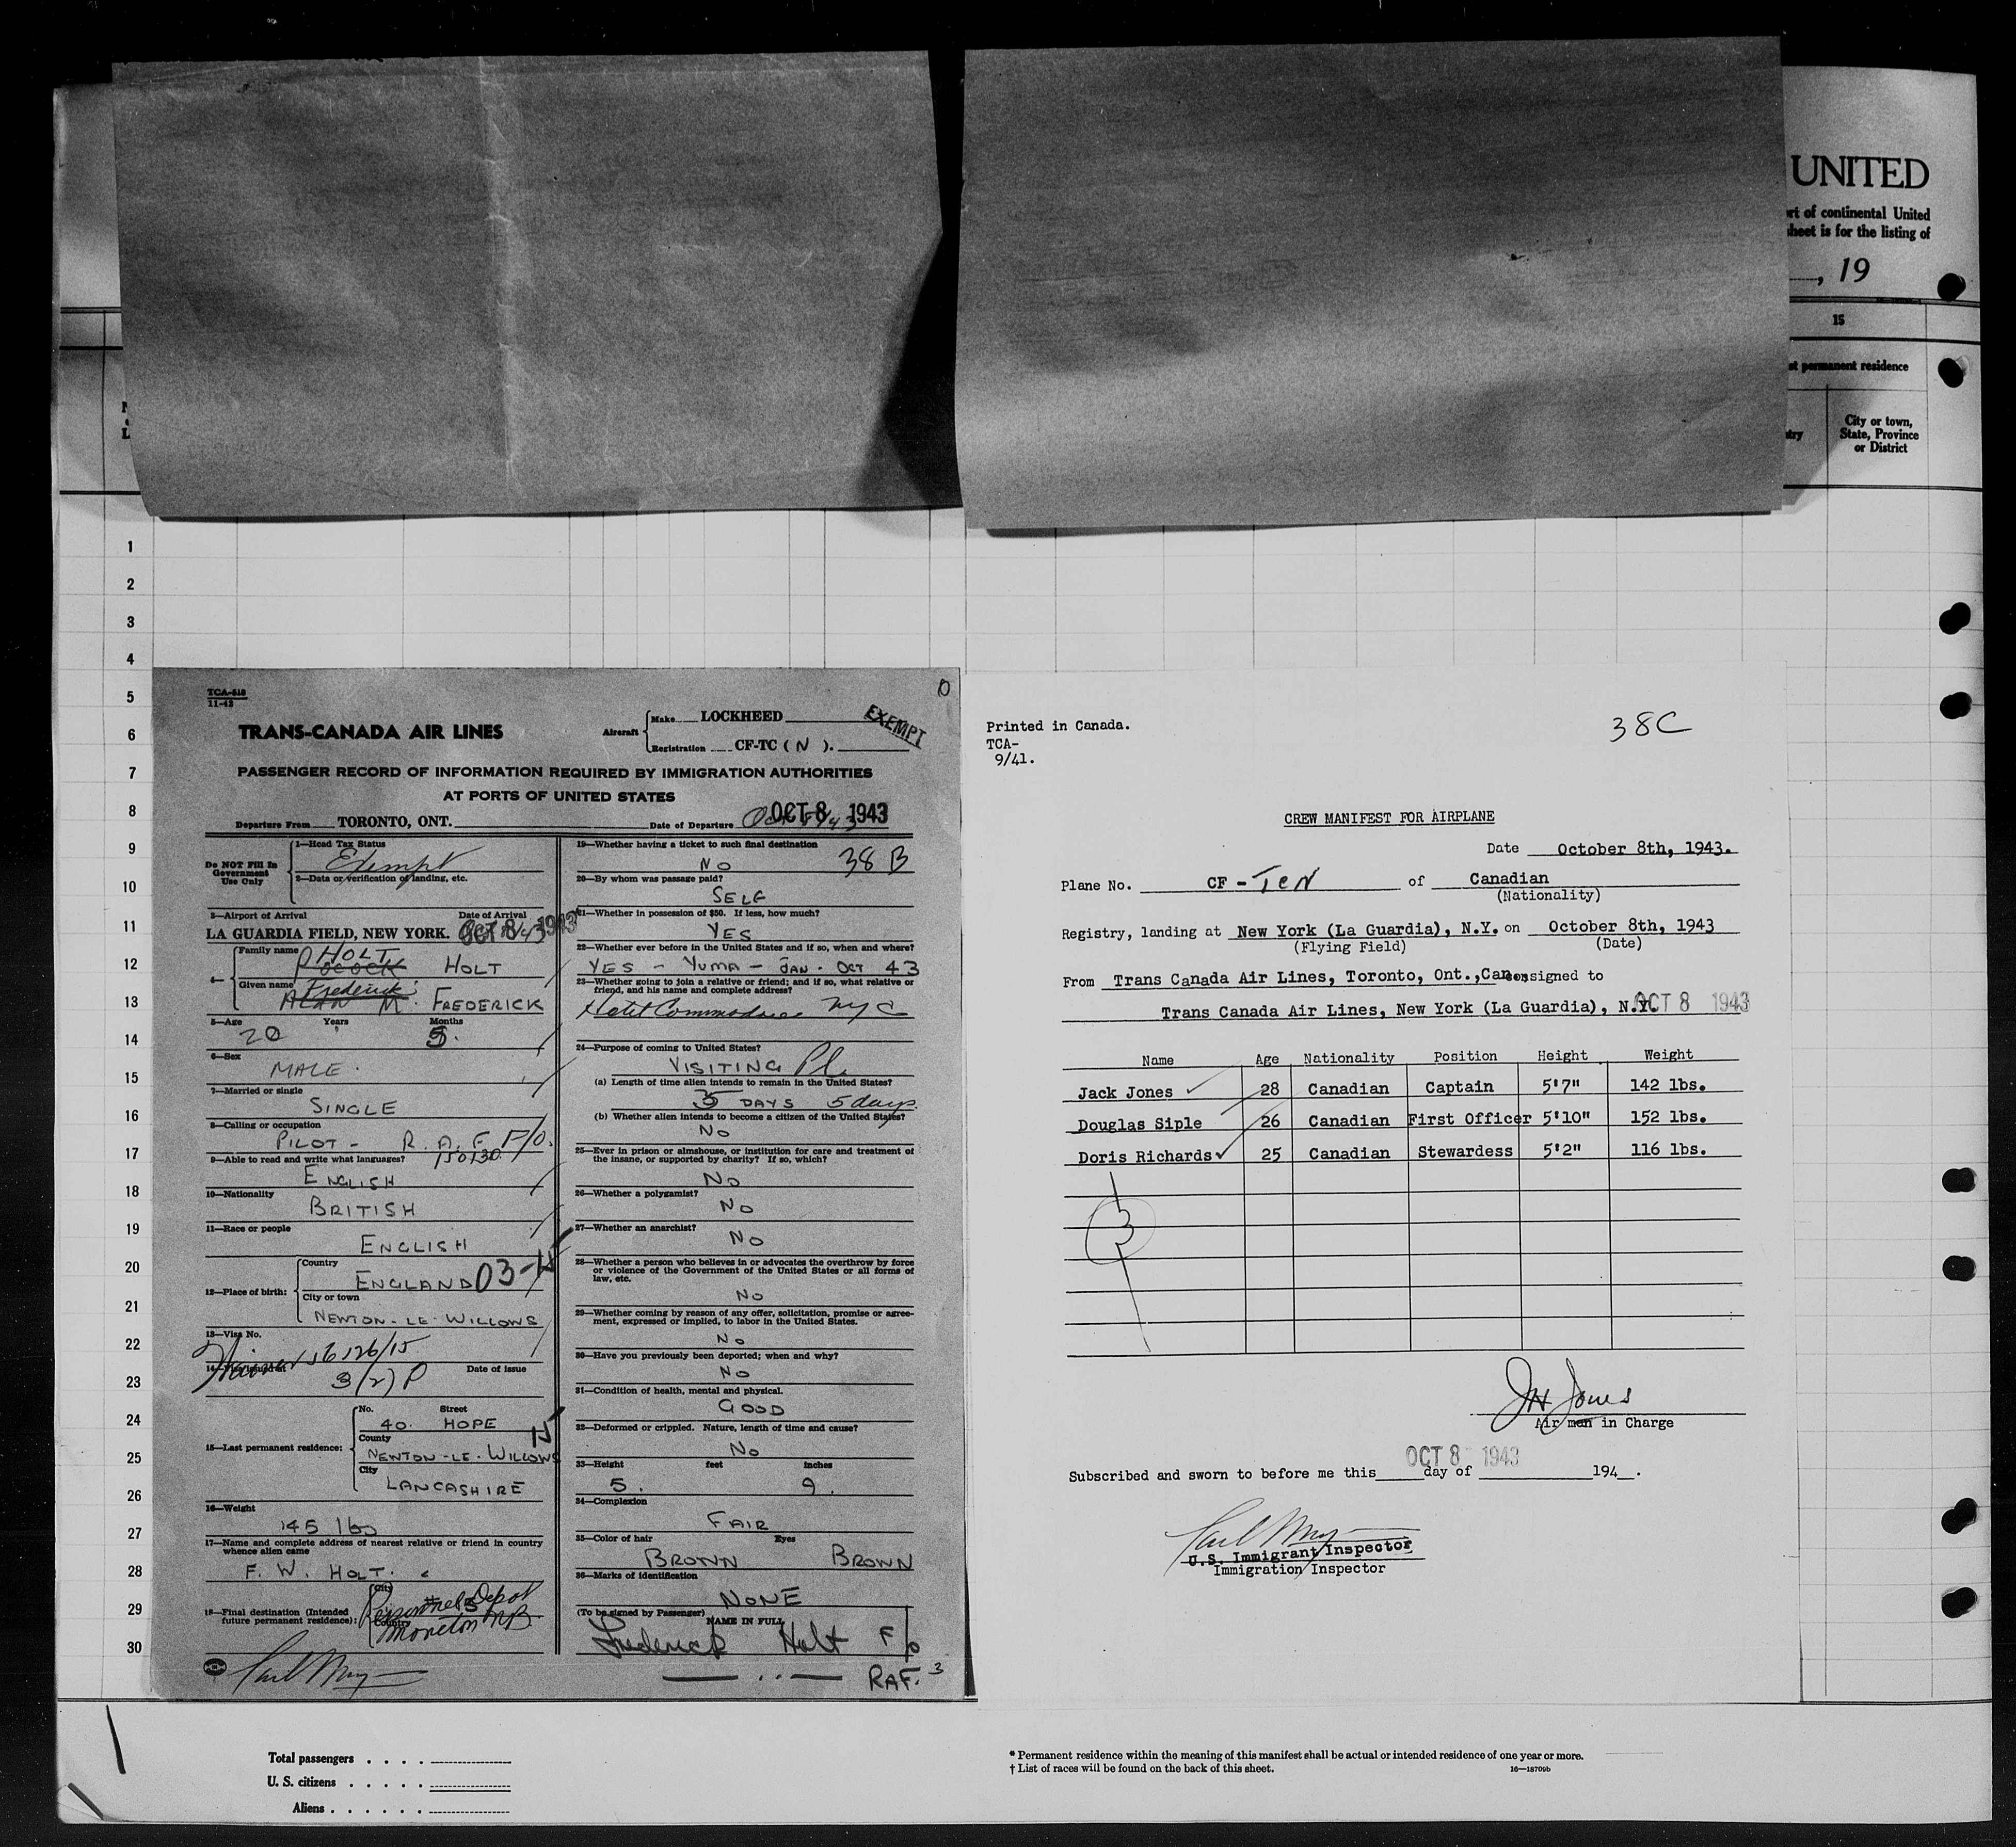 UNITED
rt of continental United
heet is for the listing of
, 19
15
st permanent residence
City or town,
State, Province
or District
1
2
3
4
5
6
7
8
9
10
11
12
13
14
15
16
17
18
19
20
21
22
23
24
25
26
27
28
29
30
TCA-518
11-42
TRANS-CANADA AIR LINES
Aircraft
Make LOCKHEED
Registration CF-TC ( N ).
EXEMPT
PASSENGER RECORD OF INFORMATION REQUIRED BY IMMIGRATION AUTHORITIES
AT PORTS OF UNITED STATES
Departure From TORONTO, ONT. Date of Departure OCT 8 1943
Do NOT Fill In
Government
Use Only
1—Head Tax Status
Exempt
2—Data or verification of landing, etc.
3—Airport of Arrival Date of Arrival
LA GUARDIA FIELD, NEW YORK. OCT 8 1943
4— Family name HOLT
POCOCK HOLT
Given name Frederick
ALAN M. FREDERICK
5—Age Years Months
20 5.
6—Sex
MALE.
7—Married or single
SINGLE
8—Calling or occupation
PILOT - R. A. F. F/O.
9—Able to read and write what languages? 150130
ENGLISH
10—Nationality
BRITISH
11—Race or people
ENGLISH
12—Place of birth:
Country
ENGLAND 03-H
City or town
NEWTON-LE-WILLOWS
13—Visa No.
Waiver 56126/15
14—Visa issued at Date of issue
3(2) P
15—Last permanent residence:
No. Street
40. HOPE
County
NEWTON-LE-WILLOWS
City
LANCASHIRE
H
16—Weight
145 lbs
17—Name and complete address of nearest relative or friend in country
whence alien came
F. W. HOLT.
18—Final destination (Intended
future permanent residence):
City
Personnel Depot
Country
Moncton N.B.
Carl May
19—Whether having a ticket to such final destination
NO 38 B
20—By whom was passage paid?
SELF
21—Whether in possession of $50. If less, how much?
YES
22—Whether ever before in the United States and if so, when and where?
YES - YUMA - JAN. OCT 43
23—Whether going to join a relative or friend; and if so, what relative or
friend, and his name and complete address?
Hotel Commodore NYC
24—Purpose of coming to United States?
VISITING Pl.
(a) Length of time alien intends to remain in the United States?
5 DAYS 5 days.
(b) Whether alien intends to become a citizen of the United States?
NO
25—Ever in prison or almshouse, or institution for care and treatment of
the insane, or supported by charity? If so, which?
NO
26—Whether a polygamist?
NO
27—Whether an anarchist?
NO
28—Whether a person who believes in or advocates the overthrow by force
or violence of the Government of the United States or all forms of
law, etc.
NO
29—Whether coming by reason of any offer, solicitation, promise or agree-
ment, expressed or implied, to labor in the United States.
NO
30—Have you previously been deported; when and why?
NO
31—Condition of health, mental and physical.
GOOD
32—Deformed or crippled. Nature, length of time and cause?
NO
33—Height feet inches
5. 9.
34—Complexion
FAIR
35—Color of hair Eyes
BROWN BROWN
36—Marks of identification
NONE
(To be signed by Passenger) NAME IN FULL
Frederick Holt F/O
RAF. 3
Printed in Canada.
TCA-
9/41.
38C
CREW MANIFEST FOR AIRPLANE
Date October 8th, 1943.
Plane No. CF - TCN of Canadian
(Nationality)
Registry, landing at New York (La Guardia), N.Y. on October 8th, 1943
(Flying Field) (Date)
From Trans Canada Air Lines, Toronto, Ont., Can. consigned to
Trans Canada Air Lines, New York (La Guardia), N.Y. OCT 8 1943
Name Age Nationality Position Height Weight
Jack Jones 28 Canadian Captain 5'7" 142 lbs.
Douglas Siple 26 Canadian First Officer 5'10" 152 lbs.
Doris Richards 25 Canadian Stewardess 5'2" 116 lbs.
3
JH Jones
Air man in Charge
OCT 8 1943
Subscribed and sworn to before me this day of 194 .
Carl May
U.S. Immigrant Inspector
Immigration Inspector
Total passengers . . . .
U. S. citizens . . . . .
Aliens . . . . . .
* Permanent residence within the meaning of this manifest shall be actual or intended residence of one year or more.
† List of races will be found on the back of this sheet. 16—18709b